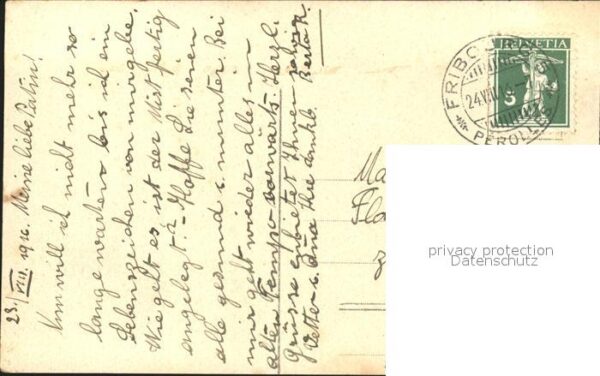 23./VIII. 1916. Meine liebe Patin!
Nun will ich nicht mehr so
lange warten bis ich ein
Lebenszeichen von mir gebe.
Wie geht es ist der Mist fertig
angelegt? - Hoffe Sie seien
alle gesund & munter. Bei
mir geht wieder alles im
alten Tempo vorwärts. Herzl.
Grüsse entbietet Ihnen sowie
Vetter u. Ihre dankb.
Berta R.
HELVETIA
5
FRIBOURG
24.VIII.16-7
PEROLLES
Ma
Flo
privacy protection
Datenschutz